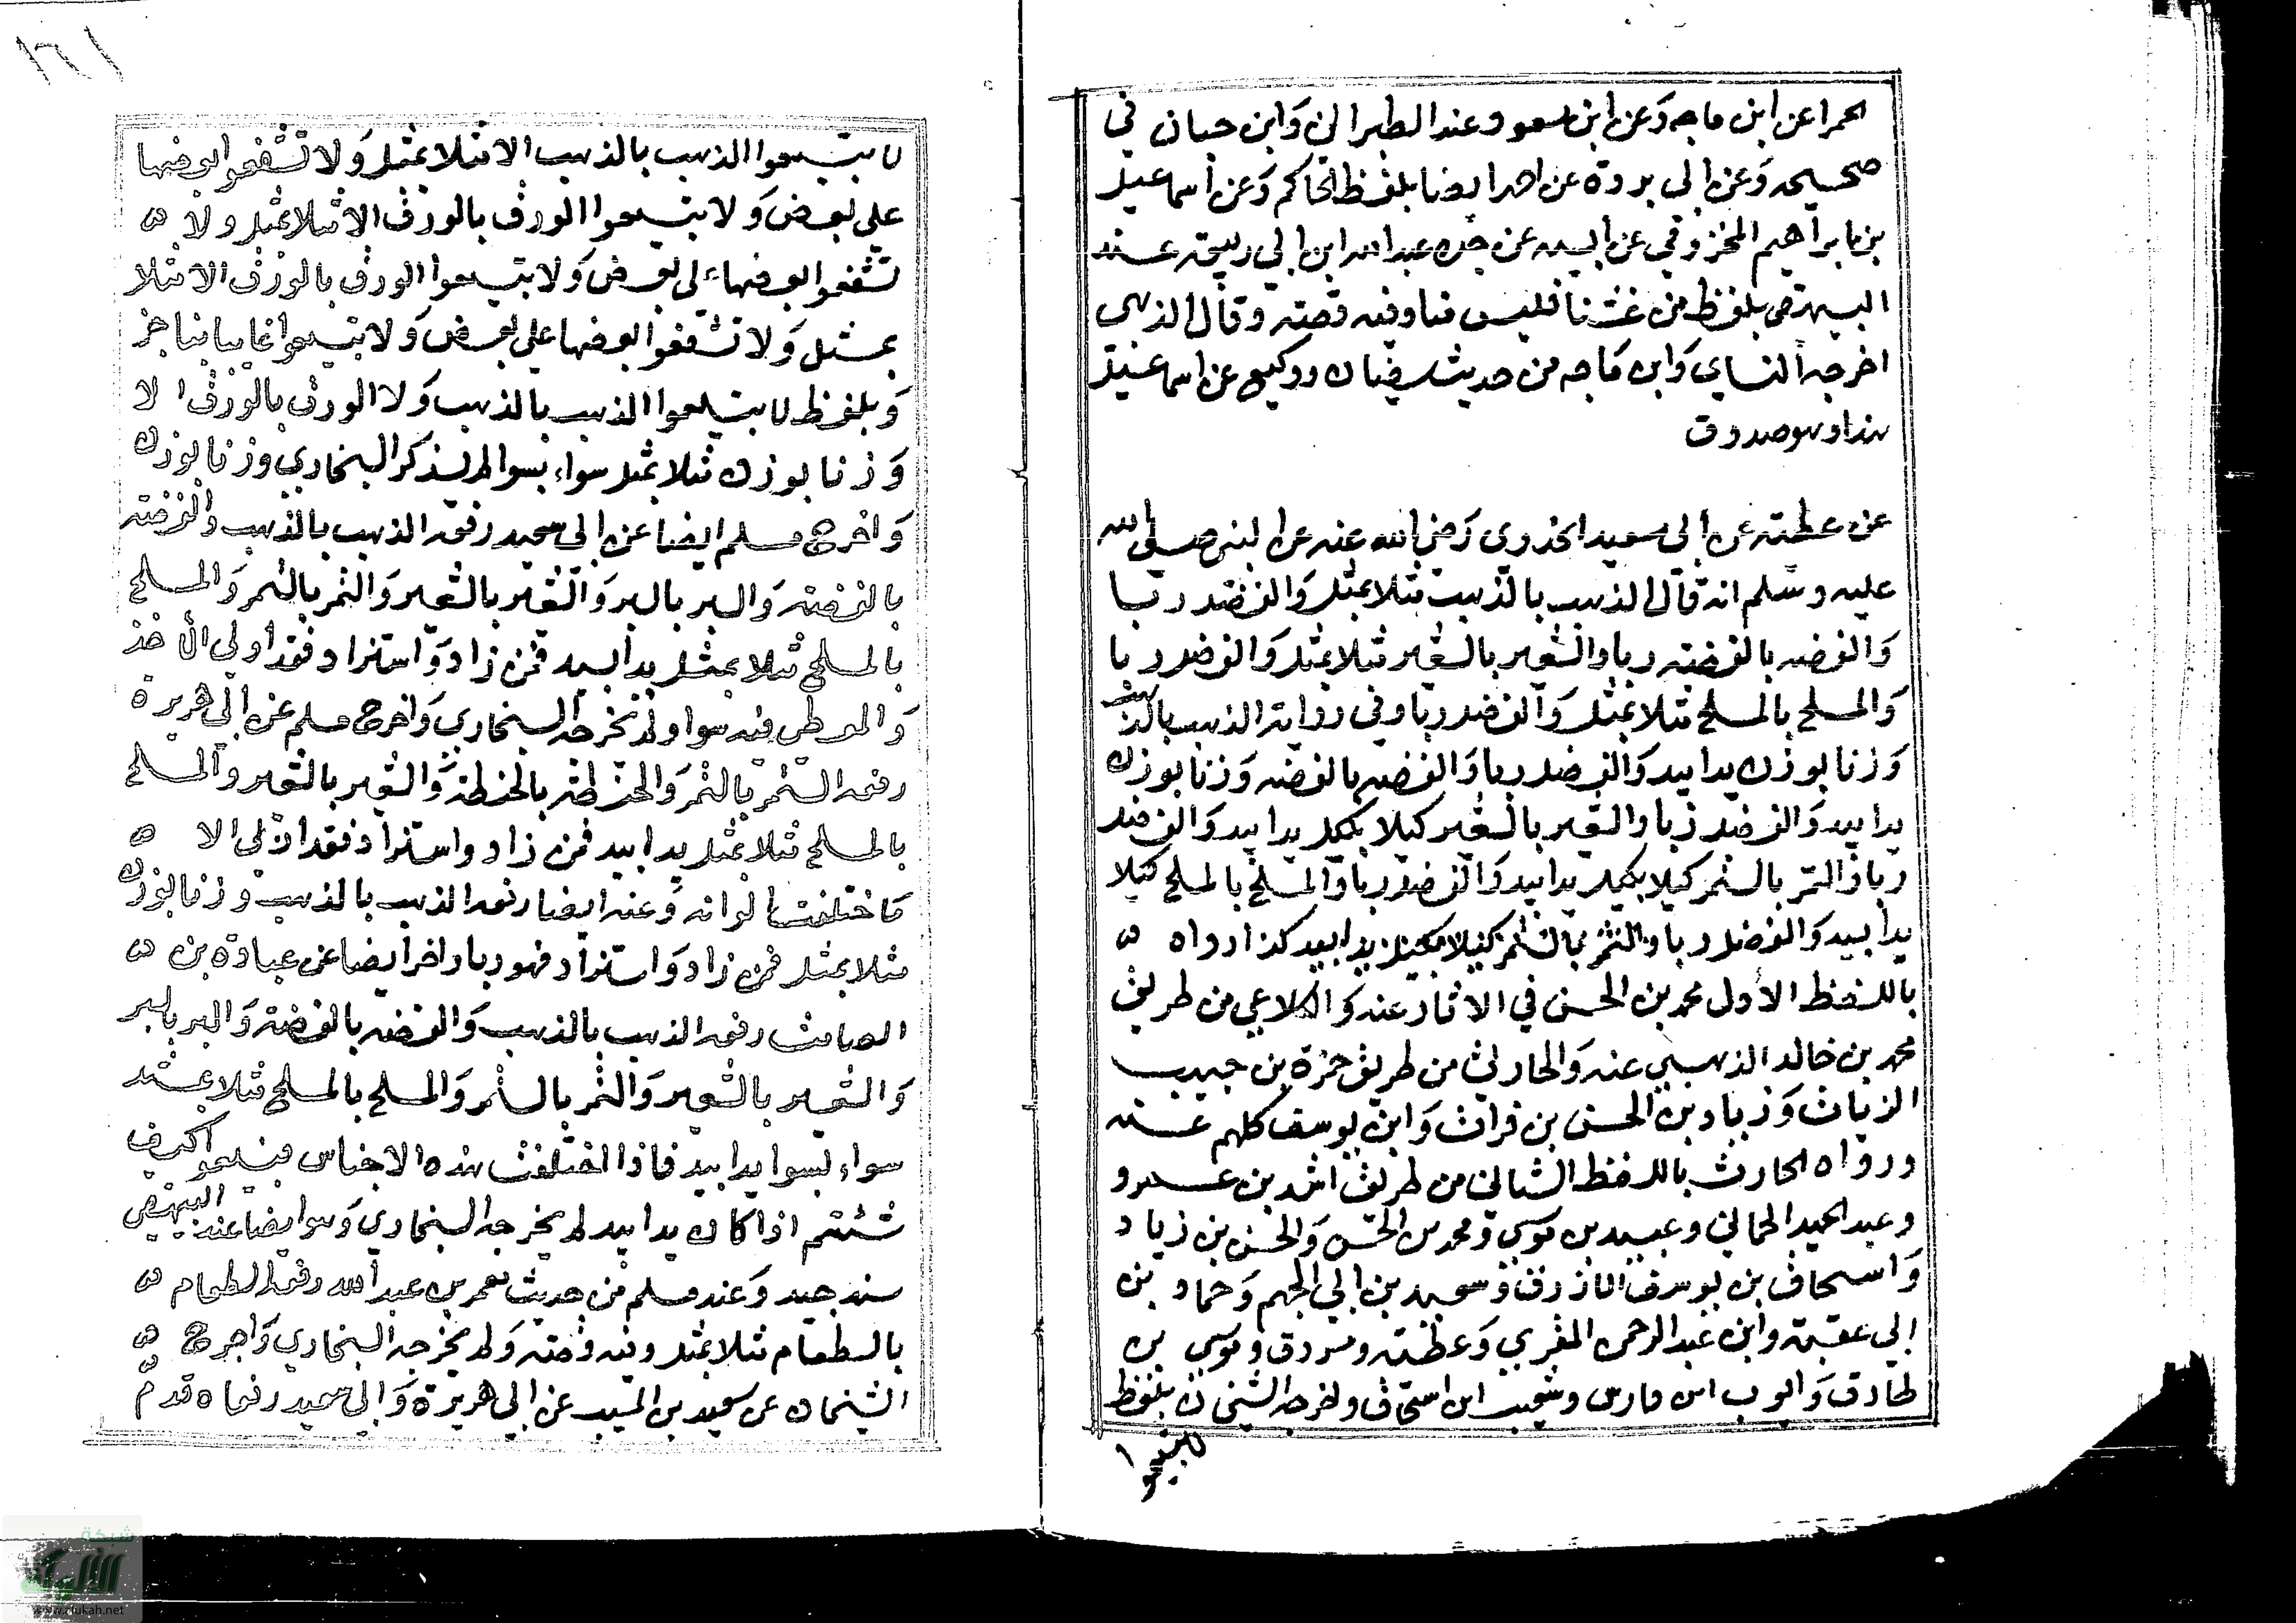 الحمرا عن ابن ماجه وَعن ابن مسعود وعند الطبراني وَابن حبان في
صحيحه وَعن ابي بردة عن احمد ايضا بلفظ الحاكم وَعن اسماعيل
بن ابراهيم المخزومي عن ابيه عن جده عبد الله ابن ابي ربيعة عند
البيهقي بلفظ من غشنا فليس منا وفيه قصته وقال الذهبي
اخرجه النساي وَابن ماجه من حديث سفيان ووكيع عن اسماعيل
هذا وهو صدوق
عن عطية عن ابي سعيد الخدري رَضي الله عنه عن النبي صلى الله
عليه وسلم انه قال الذهب بالذهب مثلا بمثل وَالفضل ربا
وَالفضه بالفضته ربا والشعير بالشعير مثلا بمثل وَالفضل ربا
وَالملح بالملح مثلا بمثل وَالفضل ربا وفي رواية الذهب بالذهب
وَزنا بوزن يدا بيد وَالفضل ربا وَالفضه بالفضه وَزنا بوزن
يدا بيد وَالفضل ربا والشعير بالشعير كيلا بكيل يدا بيد وَالفضل
ربا وَالتمر بالتمر كيلا بكيل يدا بيد وَالفضل ربا وَالملح بالملح كيلا
يدا بيد وَالفضل ربا والتمر بالتمر كيلا بكيل يدا بيد كذا رواه
باللفظ الاول محمد بن الحسن في الاثار عنه وَالكلاعي من طريق
محمد بن خالد الذهبي عنه وَالحارثي من طريق حمزة بن حبيب
الزيات وَزياد بن الحسن بن فرات وَابن يوسف كلهم عنه
ورواه الحارث باللفظ الثاني من طريق اسد بن عمرو
وعبد الحميد الحماني وعبيد بن موسي ومحمد بن الحسن وَالحسن بن زياد
وَاسحاق بن يوسف الازرق وَسعيد بن ابي الجهم وَحماد بن
ابي عقبة وابن عبد الرحمن المقري وَعطية ومسروق وموسي بن
طارق وَايوب ابن فارس وشعيب ابن اسحاق واخرجه الشيخان بلفظ
لا تبيعوا
١٢١
لا تبتيعوا الذهب بالذهب الا مثلا بمثل وَلا تشفعوا بعضها
علي بعض وَلا تبتيعوا الورق بالورق الا مثلا بمثل ولا
تشفعوا بعضها علي بعض وَلا تبتيعوا الورق بالورق الا مثلا
بمثل وَلا تشفعوا بعضها علي بعض وَلا تبتيعوا غايبا بناجز
وَبلفظ لا تبتيعوا الذهب بالذهب وَلا الورق بالورق الا
وَزنا بوزن مثلا بمثل سواء بسوا لم يذكر البخاري وزنا بوزن
وَاخرج مسلم ايضا عن ابي سعيد رفعه الذهب بالذهب والفضته
بالفضته وَالبر بالبر وَالشعير بالشعير وَالتمر بالتمر وَالملح
بالملح مثلا بمثل يدا بيد فمن زاد وَاستزاد فقد اولى الاخذ
وَالمعطي فيه سوا ولم يخرجه البخاري وَاخرج مسلم عن ابي هريرة
رفعه التمر بالتمر وَالحنطة بالحنطة وَالشعير بالشعير وَالملح
بالملح مثلا بمثل يدا بيد فمن زاد واستزاد فقد اربى الا
ما اختلفت الوانه وَعنه ايضا رفعه الذهب بالذهب وزنا بوزن
مثلا بمثل فمن زاد وَاستزاد فهو ربا واخر ايضا عن عبادة بن
الصامت رفعه الذهب بالذهب وَالفضه بالفضة وَالبر بالبر
وَالشعير بالشعير وَالتمر بالتمر وَالملح بالملح مثلا بمثل
سواء بسوا يدا بيد فاذا اختلفت هذه الاجناس فبيعوا كيف
شئتم اذا كان يدا بيد لم يخرجه البخاري وَهو ايضا عند البيهقي
سند جيد وَعند مسلم من حديث معمر بن عبد الله رفعه الطعام
بالطعام مثلا بمثل وفيه قصته وَلم يخرجه البخاري وَاخرج
الشيخان عن سعيد بن المسيب عن ابي هريرة وَابي سعيد رفعاه قدم
شبكة
الألوكة
www.alukah.net